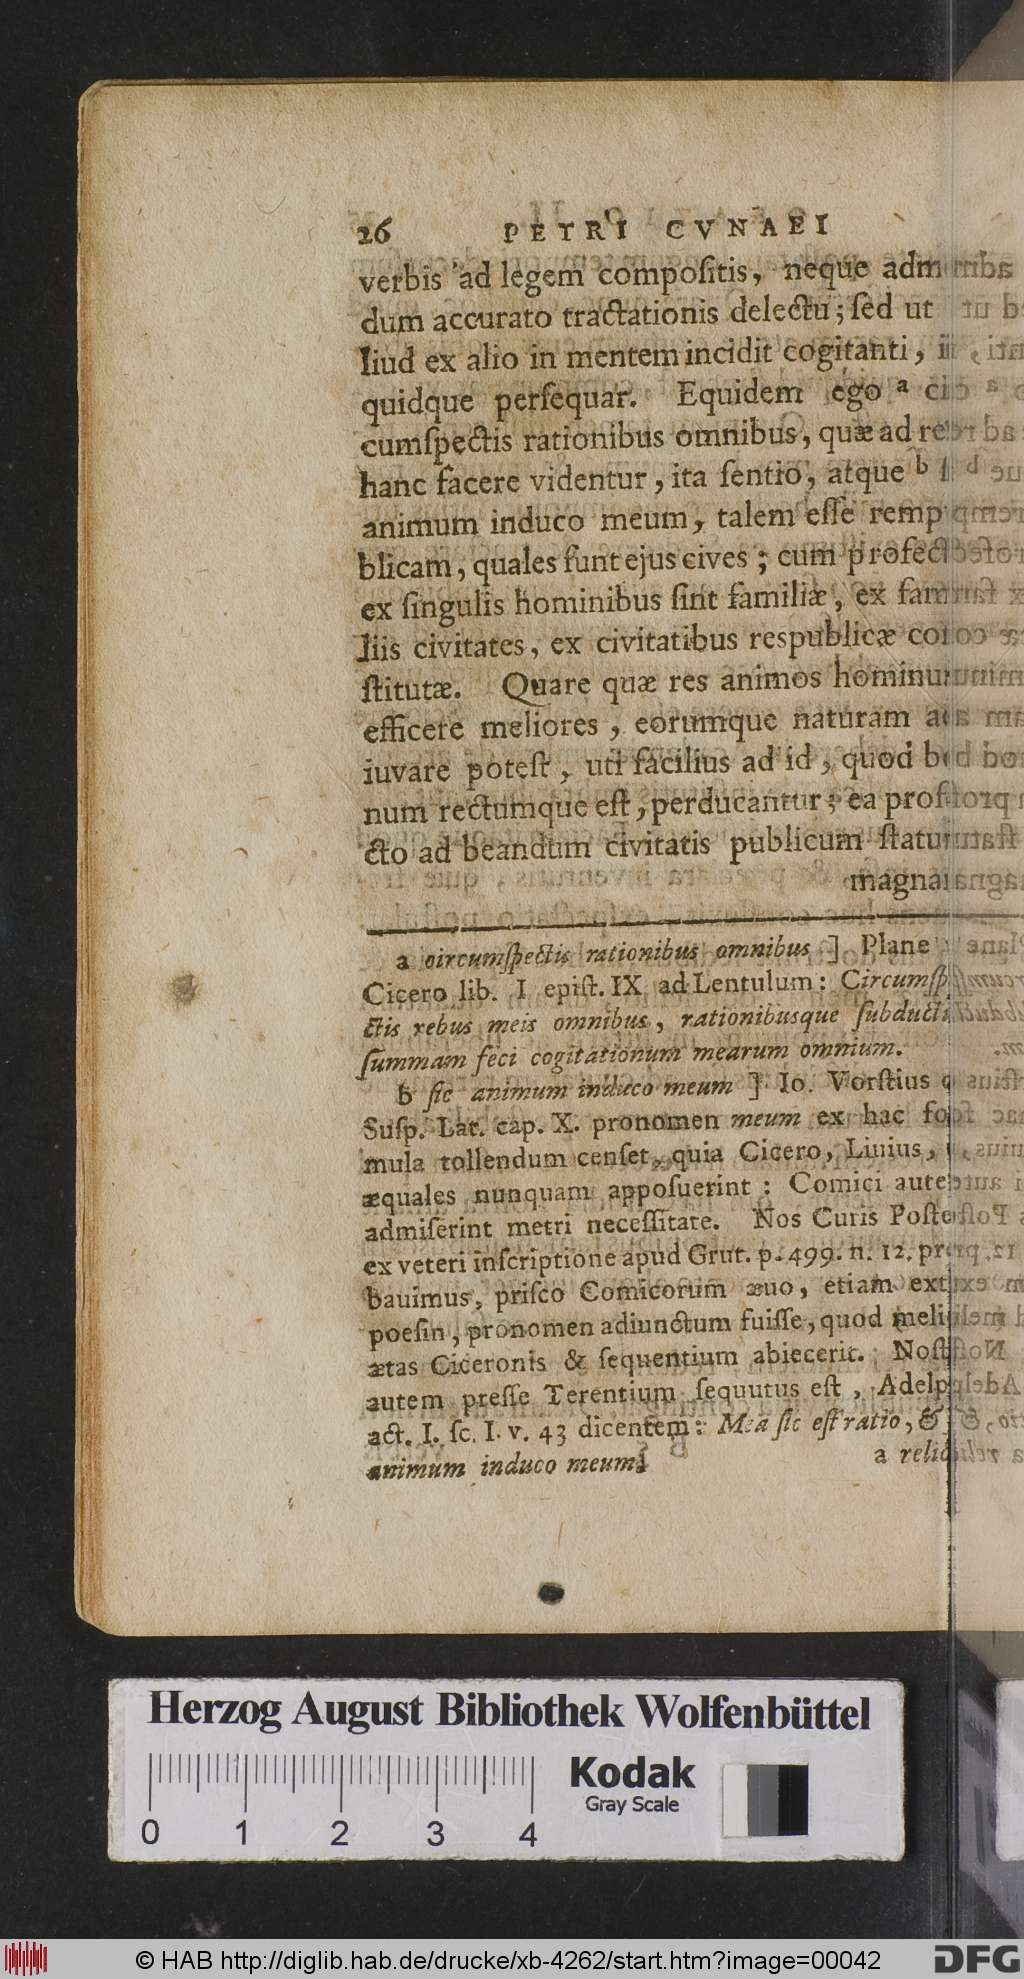 26 PETRI CVNAEI
verbis ad legem compoſitis, neque adm
dum accurato tractationis delectu; ſed ut
liud ex alio in mentem incidit cogitanti,
quidque perſequar. Equidem ego a ci
cumſpectis rationibus omnibus, quæ ad re
hanc facere videntur, ita ſentio, atque b
animum induco meum, talem eſſe remp
blicam, quales ſunt ejus cives; cum profect
ex ſingulis hominibus ſint familiæ, ex fam
liis civitates, ex civitatibus respublicæ co
ſtitutæ. Quare quæ res animos hominu
efficere meliores, eorumque naturam a
iuvare poteſt, uti facilius ad id, quod b
num rectumque eſt, perducantur; ea prof
cto ad beandum civitatis publicum ſtatu
magna
a circumſpectis rationibus omnibus ] Plane
Cicero lib. I epiſt. IX ad Lentulum: Circumſp
ctis rebus meis omnibus, rationibusque ſubducti
ſummam feci cogitationum mearum omnium.
b ſic animum induco meum ] Io. Vorſtius
Suſp. Lat. cap. X. pronomen meum ex hac fo
mula tollendum cenſet, quia Cicero, Liuius,
æquales nunquam appoſuerint: Comici aute
admiſerint metri neceſſitate. Nos Curis Poſte
ex veteri inſcriptione apud Grut. p. 499. n. 12. pr
bauimus, priſco Comicorum æuo, etiam ext
poeſin, pronomen adiunctum fuiſſe, quod meli
ætas Ciceronis & ſequentium abiecerit. Noſt
autem preſſe Terentium ſequutus eſt, Adelp
act. I. ſc. I. v. 43 dicentem: Mea ſic eſt ratio, &
animum induco meum.
a reli
Herzog August Bibliothek Wolfenbüttel
0 1 2 3 4
Kodak
Gray Scale
© HAB http://diglib.hab.de/drucke/xb-4262/start.htm?image=00042
DFG